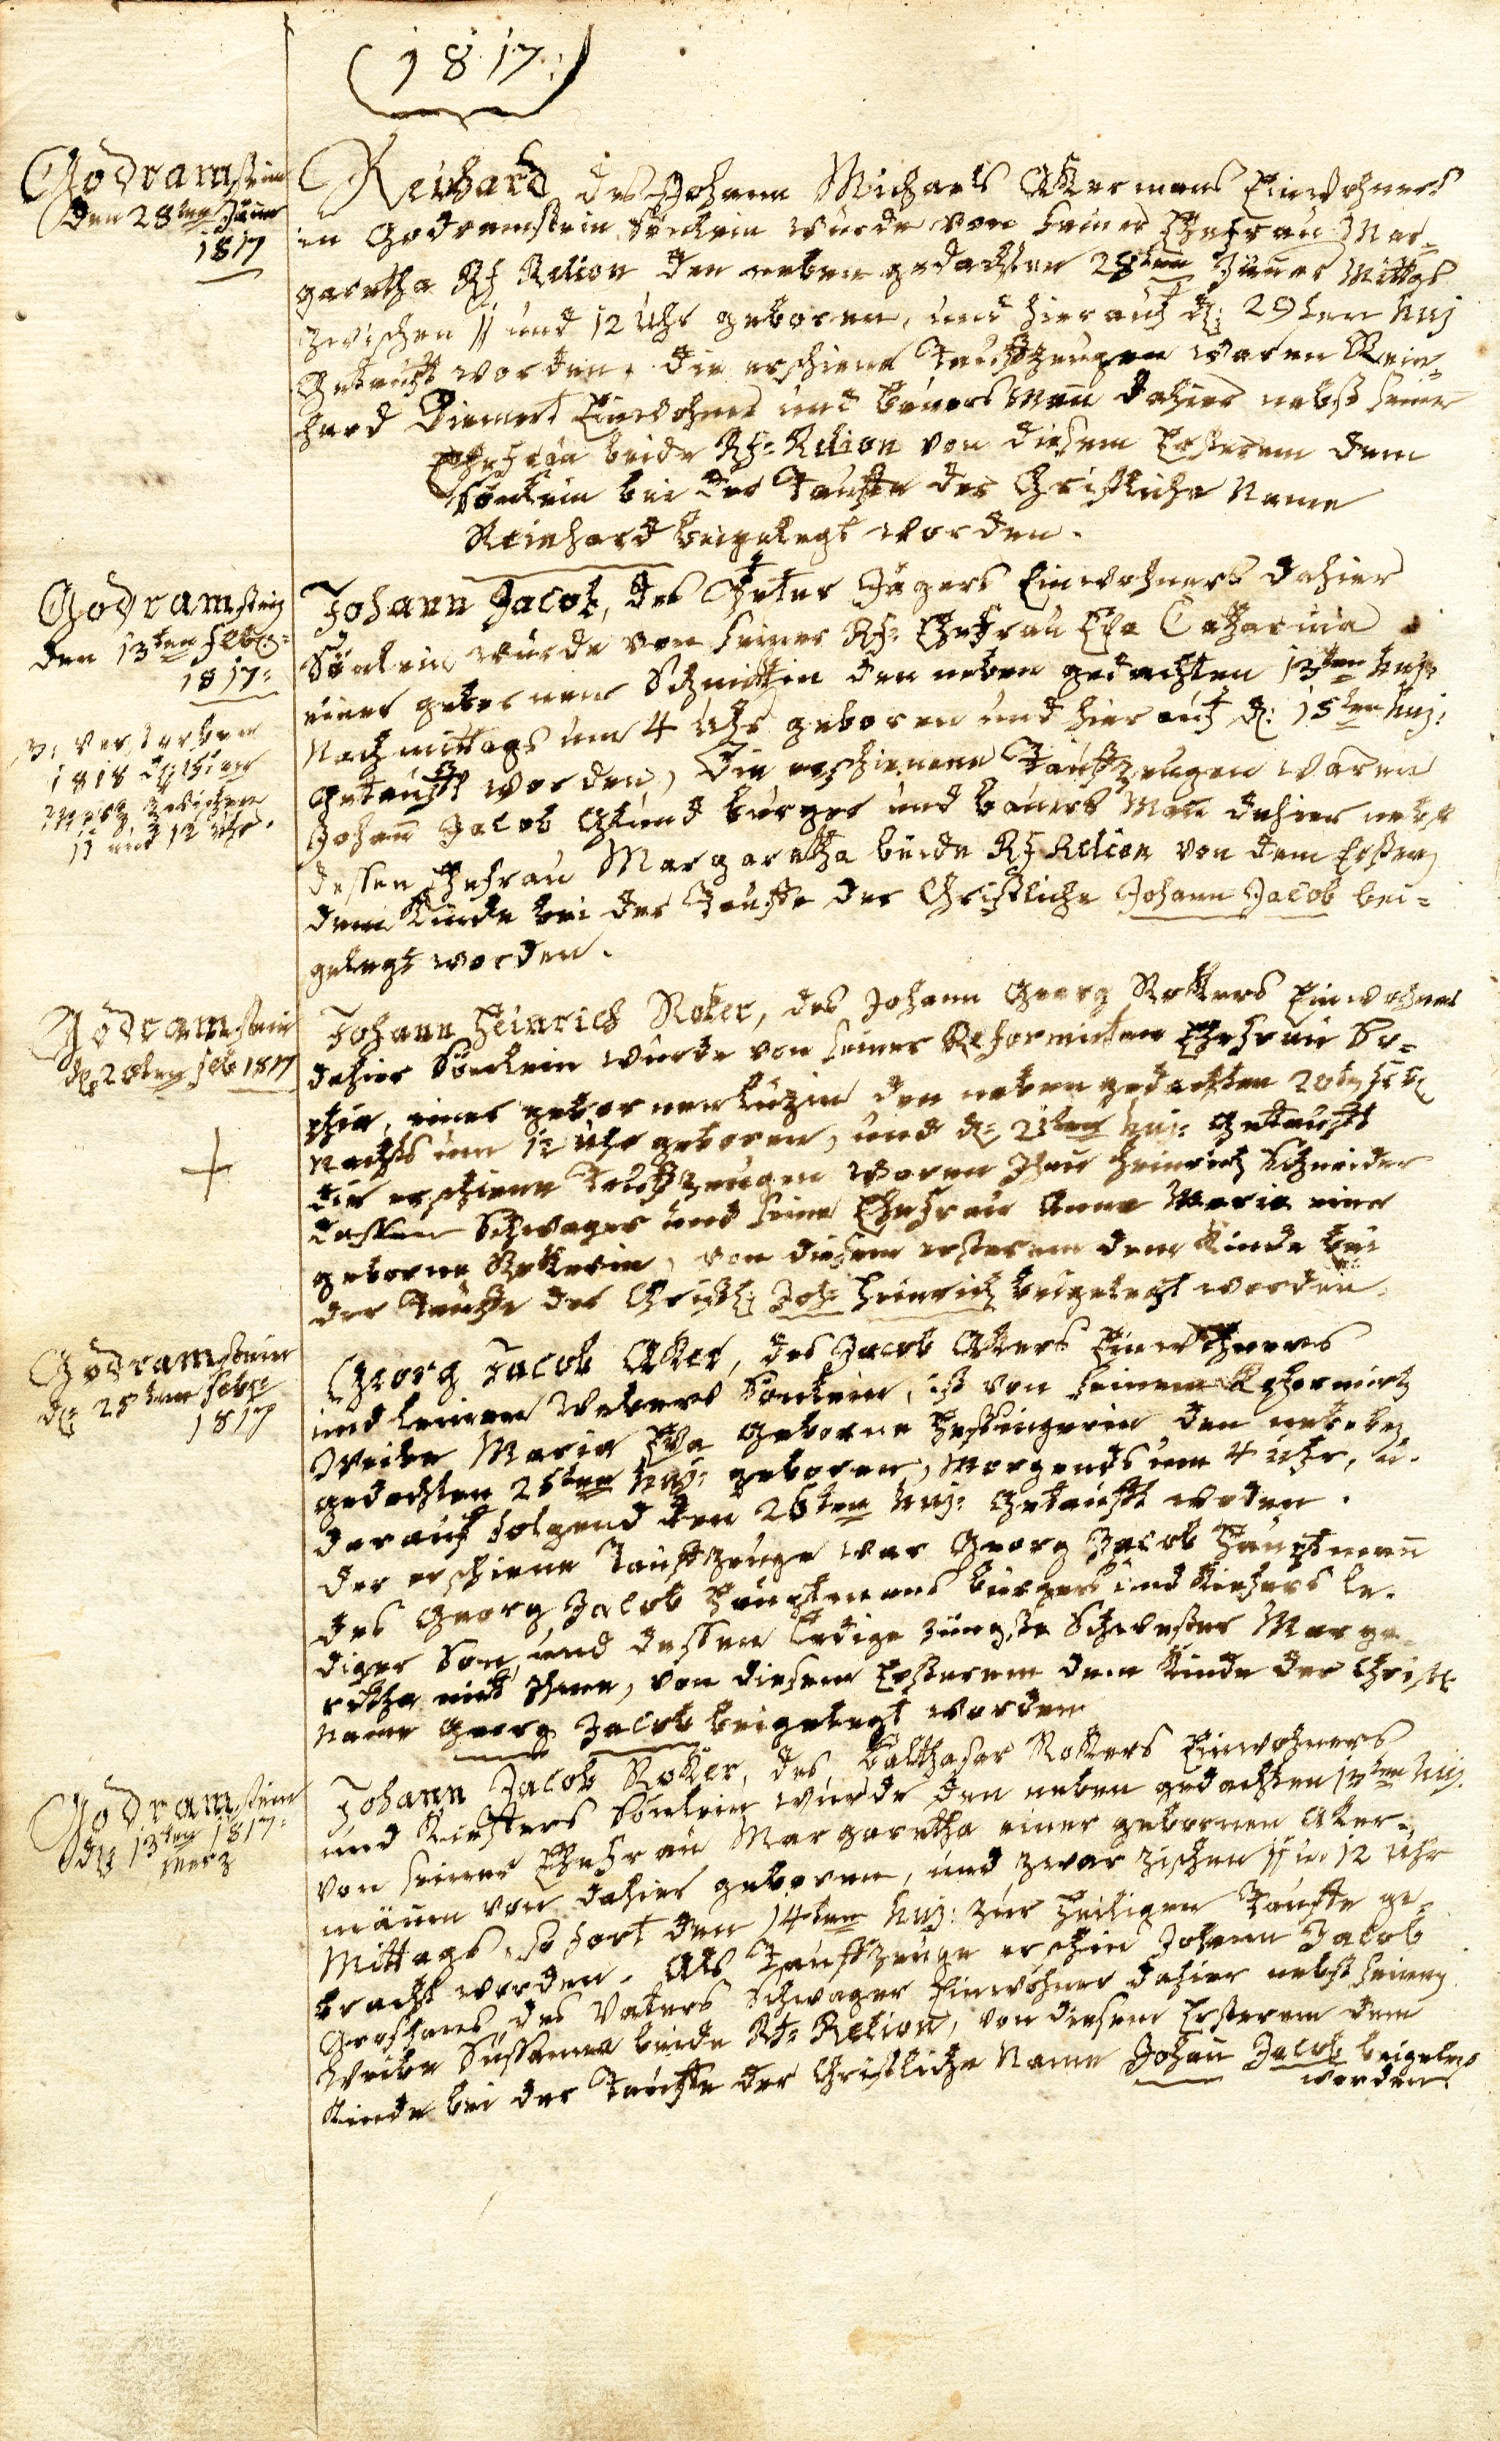 (1817:)
Godramstein
den 28ten Jäner
1817
Reihard des Johann Michaels Akermans Einwohners
in Godramstein Sönlein wurde von seiner Ehefrau Mar=
garetha Rf Relion den neben gedachten 28ten Jäner Mittgs
zwischen 11 und 12 Uhr geboren, und hierauf d: 29ten huj
Getauft worden. die erschiene Taufzeugen waren Rein=
hard Einwohner und bauers Man dahier nebst seiner
Ehefrau beide Rf: Relion von diesem Ersterem dem
Sönlein bei der Tauffe der Christliche Name
Reinhard beigelegt worden.
Godramstein
den 13ten Febr:
1817:
verstorben
1818
Mertz zwischen
11 und 12 Uhr.
Johann Jacob, des Peter Jägers Einwohners dahier
Sönlein wurde von seiner Rf: Ehefrau Eva Catharina
einer gebornen Schmittin den neben gedachten 13ten huj:
Nachmittags um 4 Uhr geboren und hierauf d: 15ten huj:
Getaufft worden, Die erschienene Taufzeugen waren
Johan Jacob burger und bauers Man dahier nebst
dessen Ehefrau Margaretha beide Rf Relion von dem Ersten
dem Kinde bei der Tauffe der Christliche Johann Jacob bei=
gelegt worden.
Godramstein
d: 20ten feb 1817
Johann Heinrich Roker, des Johann Georg Rokkers Einwohner
dahier Sönlein wurde von seiner Reformirten Ehefrau So=
phia, einer gebornen den neben gedachten 20ten
Nachts um 12 Uhr geboren, und d: 21ten huj: Getaufft
die erschiene Taufzeugen waren Heinrich Schneider
dessen Schwager und seine Ehefrau Anna Maria eine
geborne Rokerin, von diesem ersterem dem Kinde bei
der Tauffe der Christl: Joh: Heinrich beigelegt worden.
Godramstein
d: 25ten Febr
1817
Georg Jacob Aker, des Jacob Akers Einwohners
und leinen Webers Sönlein, ist von seinem Reformirtg
Weibe Maria Eva Geborne den neben
gedachten 25ten huj: geboren, Morgends um 4 Uhr, u.
darauf folgend den 26ten huj: Getaufft woden.
der erschiene Taufzeuge war Georg Jacob Hauptman
des Georg Jacob Hauptmans burgers und Kiefers le.
diger Son, und dessen ledige jüngste Schwester Marga=
retha von diesem Ersterem dem Kinde der Christl
Name Georg Jacob beigelegt worden
Godramstein
d: 13ten 1817:
Merz
Johann Jacob Roker, des Balthasar Rokers Einwohners
und Kieffers Sönlein wurde den neben gedachten 13ten huj.
von seiner Ehefrau Margaretha einer gebornen Aker=
mänen von dahier geboren, und zwar zischen 11 u. 12 Uhr
Mittags, so fort den 14ten huj: zur Heiligen Tauffe ge=
bracht worden. Als Taufzeuge erschin Johann Jacob
des Vaters Schwager Einwohner dahier nebst seinem
Weibe Susanna beide Rf: Relion, von diesem Ersterem dem
Kinde bei der Tauffe der Christliche Name Johan Jacob beigelegt
worden